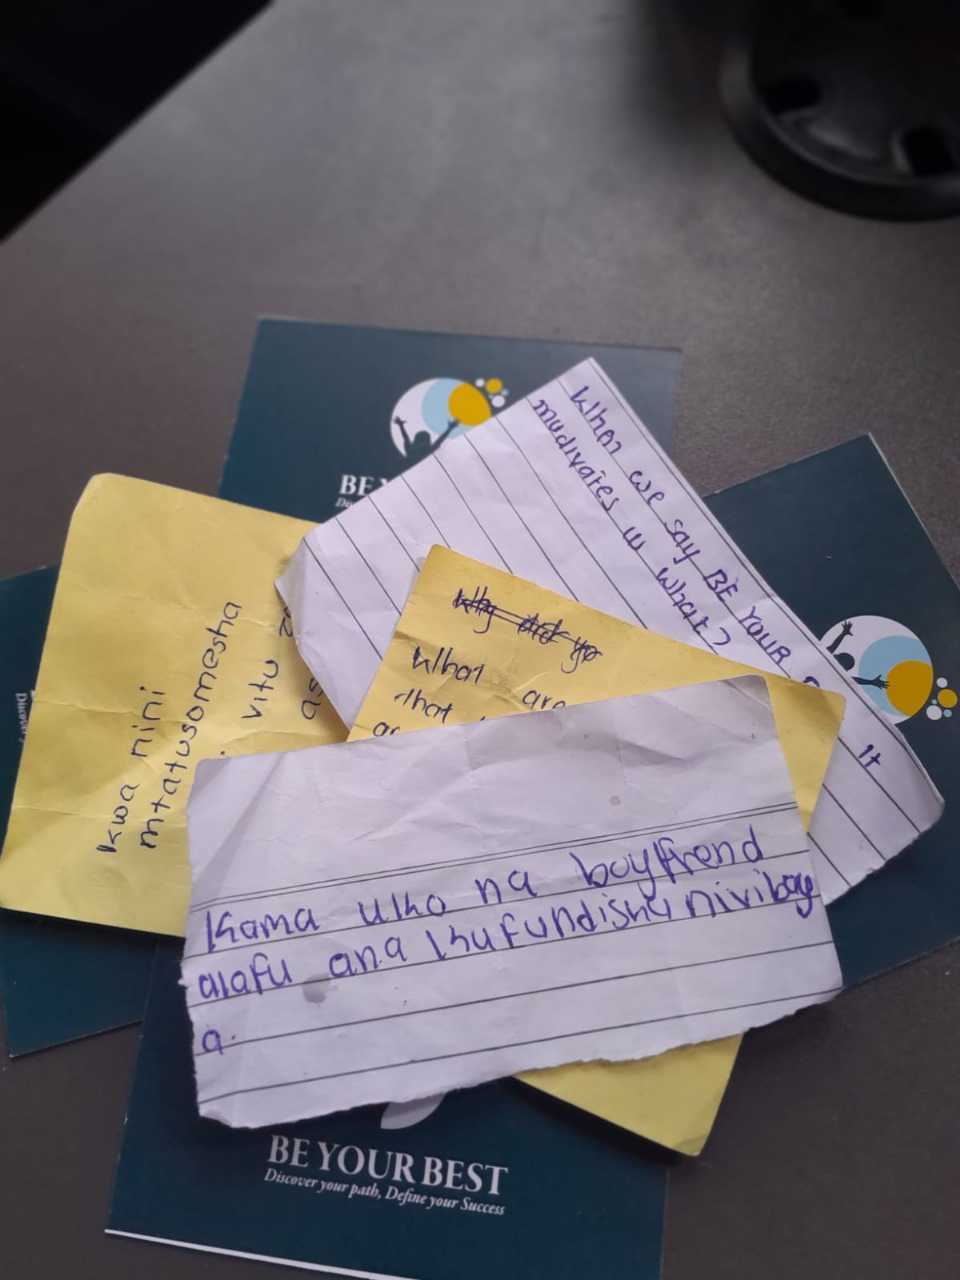 BE
When we say BE YOUR
mudivates us what?
It
kwa nini
mtatusomesha
vitu
as
Why did yo
What are
that
ar
Kama uko na boyfrend
alafu ana kufundishu nivibaye
a.
BE YOUR BEST
Discover your path, Define your Success